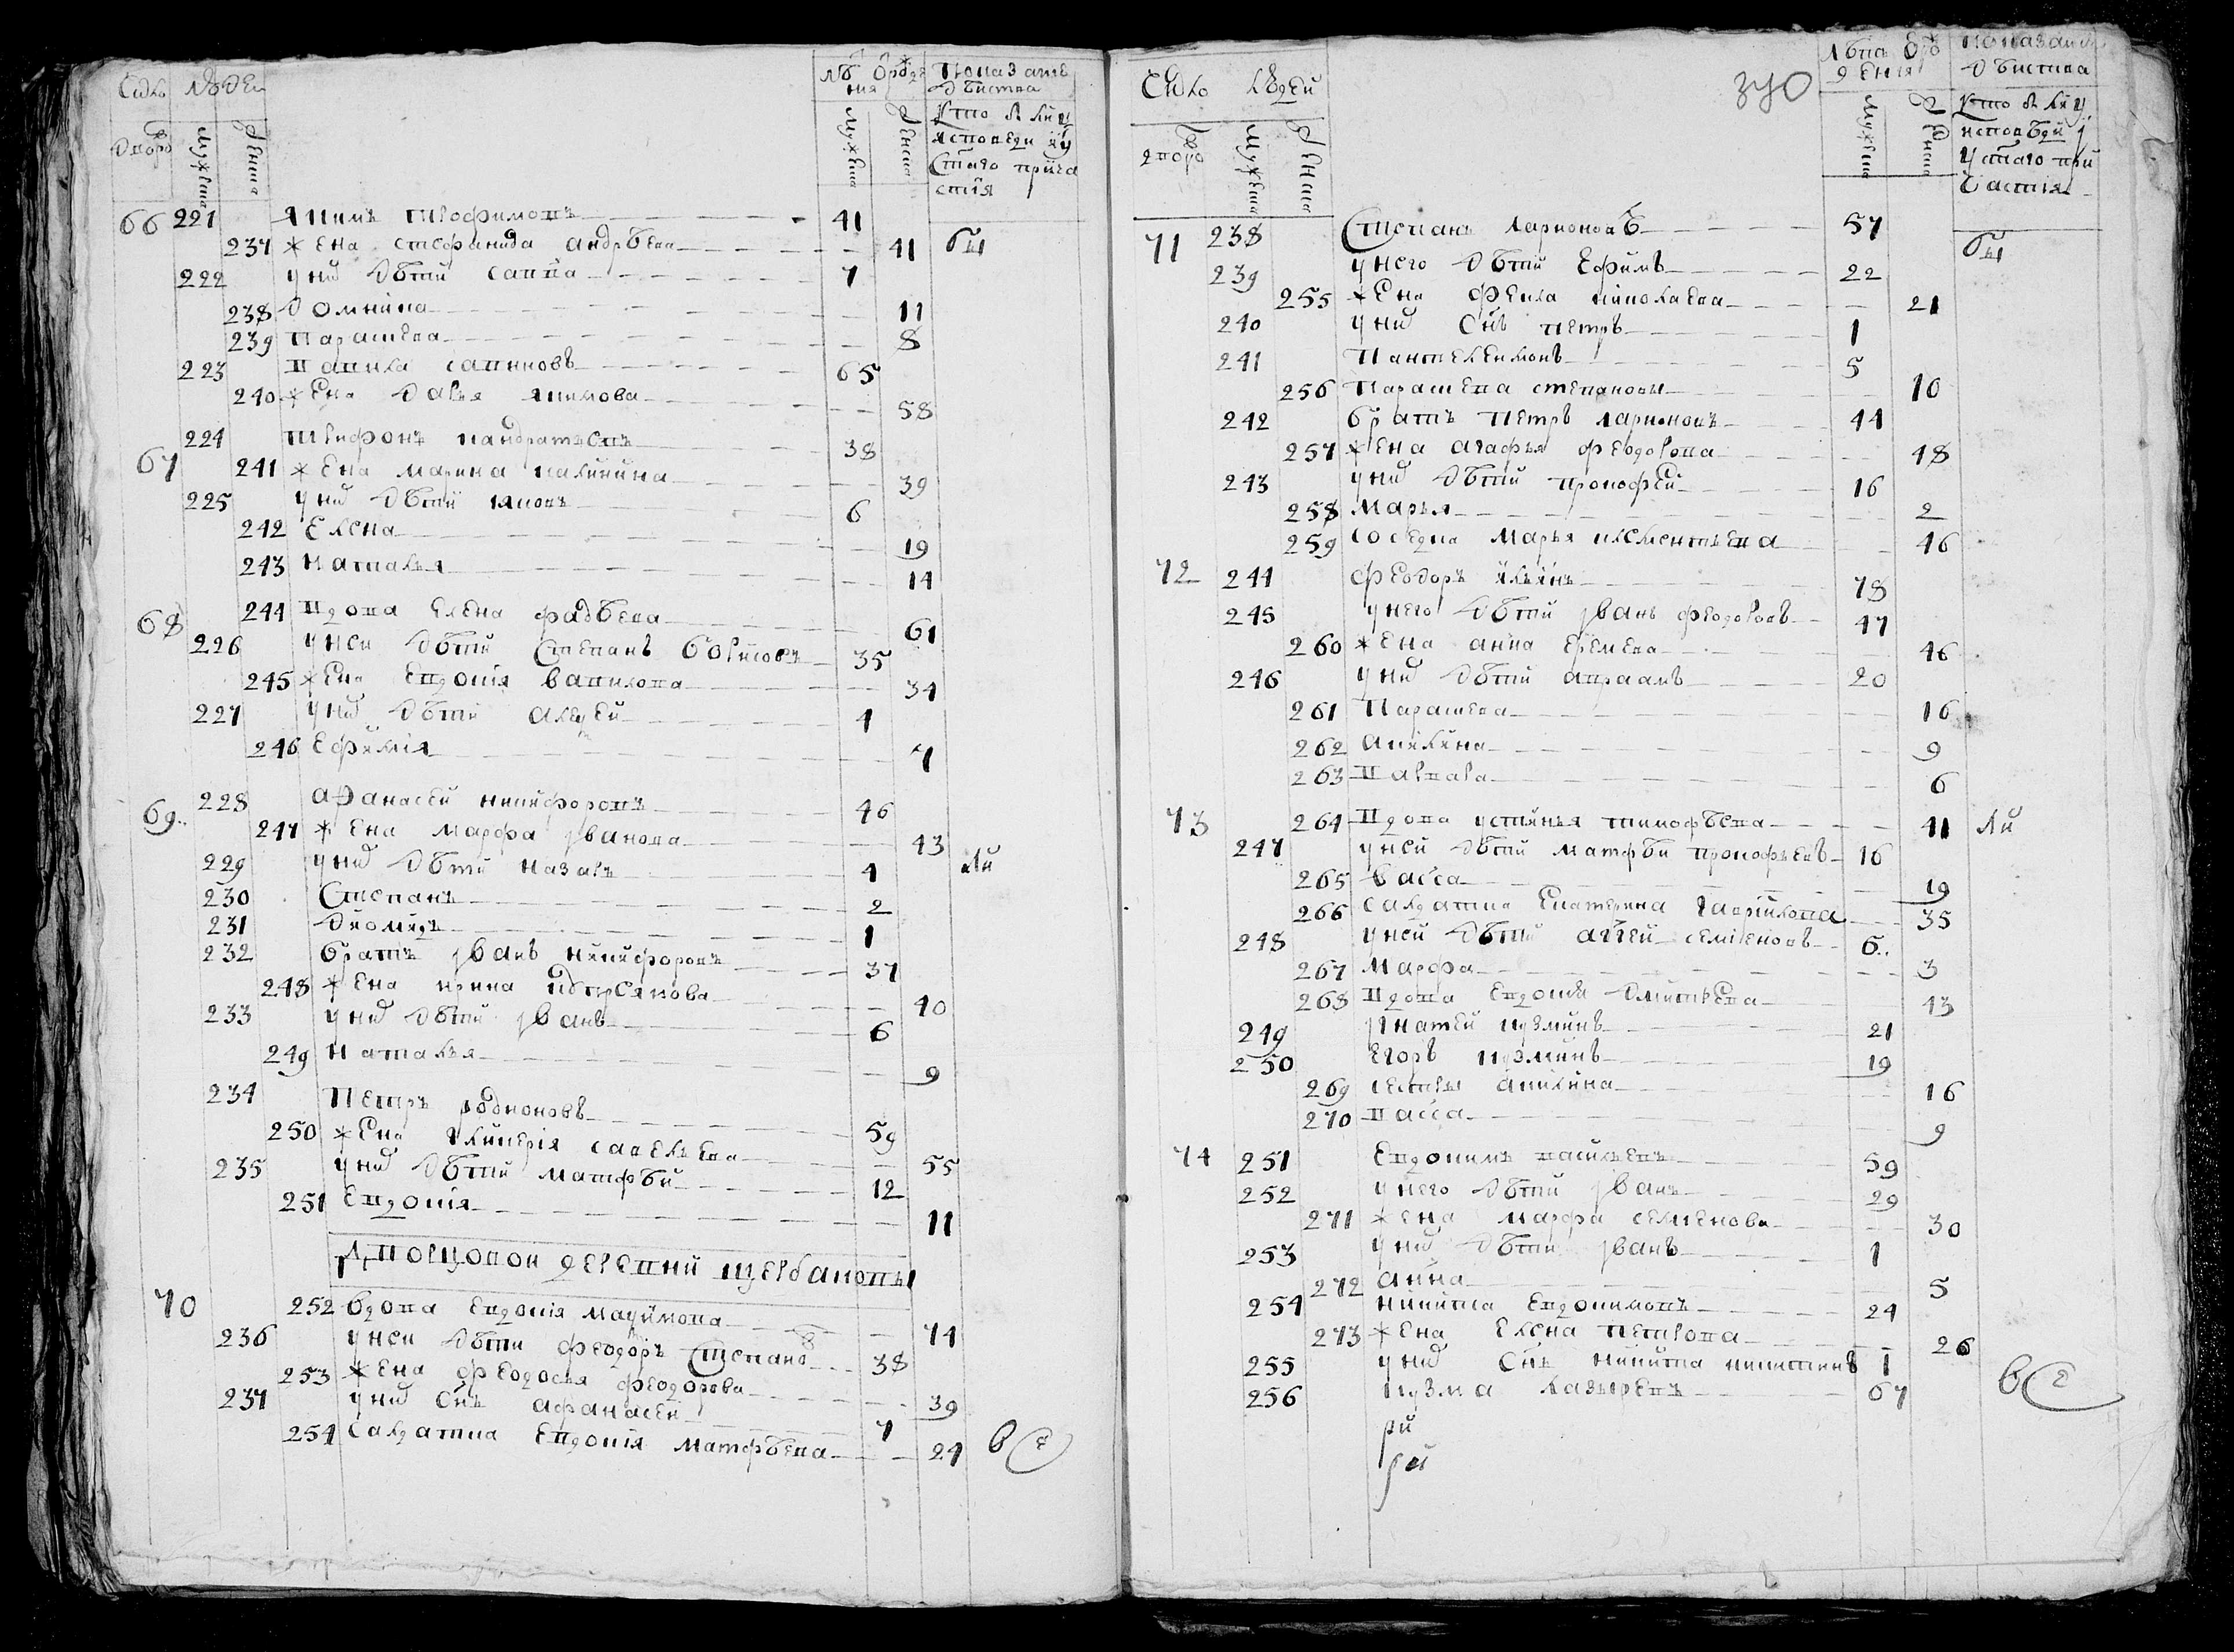 Сколко людей
Дворов Мужеска Женска
Лета от рождения
Мужеска Женска
Показание действа
Кто был у
исповеди и у
святаго прича
стия
66 221 Яким Трофимов 41
237 жена Стефанида Андрѣева 41 бы
222 у них дѣти Савва 7
238 Домникиа 11
239 Парасѣева 8
223 Вавила Савинов 65
240 жена Дарья Якимова 58
67 224 Трифон Кандратьев 38
241 жена Марина Калинина 39
225 у них дѣти Яков 6
242 Елена 19
243 Наталья 14
68 244 Вдова Елена Фадѣева 61
226 у неи дѣти Степан Борисов 35
245 жена Евдокия Вавилова 34
227 у них дѣти Авдей 4
246 Ефимия 7
69 228 Афанасей Никифоров 46
247 жена Марфа Иванова 43
229 у них дѣти Назар 4 ли
230 Степан 2
231 Диомид 1
232 брат Иван Никифоров 37
248 жена Ирина 40
233 у них дѣти Иван 6
249 Наталья 9
234 Петр Родионов 59
250 жена Гликерия Савельева 55
235 у них дѣти Матфѣй 12
251 Евдокия 11
Дворцовой деревни Щербаковы
70 252 Вдова Евдокия Максимова 74
236 у неи дѣти Феодор Степанов 38
253 жена Феодосья Феодорова 39
237 у них сын Афанасеи 7
254 Салдатка Евдокия Матфѣева 24 все
370
Сколко людей
Дворов Мужеска Женска
Лѣта от рождения
Мужеска Женска
Показание дѣйства
Кто был у
исповѣди и
у святаго при
частия
71 238 Степан Ларионов 57 бы
239 у него дѣти Ефим 22
255 жена Фекла Николаева 21
240 у них сын Петр 1
241 Пантелеимон 5
256 Парасѣева Степанова 10
242 брат Петр Ларионов 44
257 жена Агафья Феодорова 48
243 у них дѣти Прокофей 16
258 Марья 2
259 соседка Марья Клементьева 46
72 244 Феодор Ильин 78
245 у него дѣти Иван Феодоров 47
260 жена Анна Еремеева 46
246 у них дѣти Авраам 20
261 Парасѣева 16
262 Акилина 9
263 Варвара 6
73 264 Вдова Устинья Тимофѣева 41 ли
247 у неи дѣти Матфѣй Прокофьев 16
265 Васса 19
266 Салдатка Екатерина Гаврилова 35
248 у неи дѣти Семенов 6
267 Марфа 3
268 Вдова Евдокия Дмитрѣева 43
249 Игнатеи Кузмин 21
250 Егор Кузмин 19
269 сестры Акилина 16
270 Васса 9
74 251 Евдоким Васильев 59
252 у него дѣти Иван 29
271 жена Марфа Семенова 30
253 у них дѣти Иван 1
272 Анна 5
254 Никита Евдокимов 24
273 жена Елена Петрова 26
255 у них сын Никита Никитин 1
256 Кузма Лазарев 67 все
ри